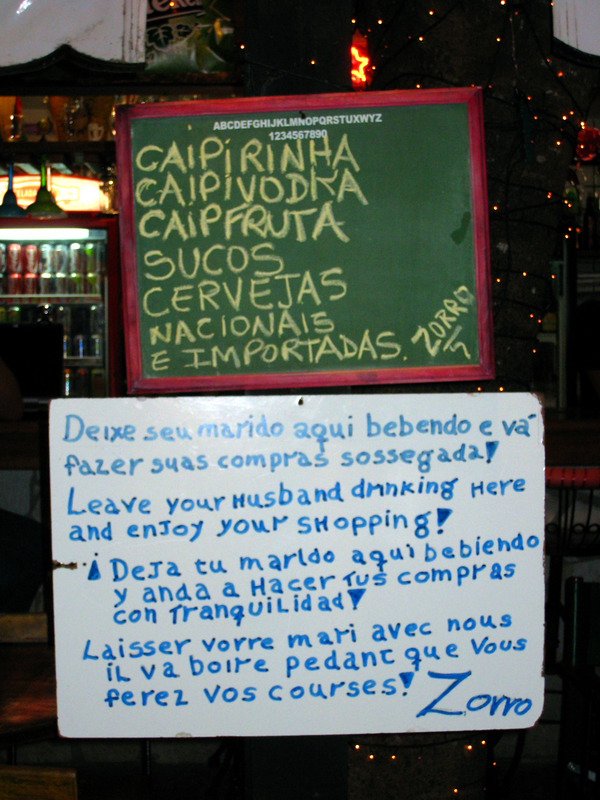 ABCDEFGHIJKLMNOPQRSTUVWXYZ
1234567890
CAIPIRINHA
CAIPIVODKA
CAIPFRUTA
SUCOS
CERVEJAS
NACIONAIS
E IMPORTADAS.
ZORRO
Deixe seu marido aqui bebendo e vá
fazer suas compras sossegada!
Leave your Husband drinking Here
and enjoy your SHopping!
¡Deja tu marido aqui bebiendo
y anda a Hacer Tus compras
con Tranquilidad!
Laisser vorre mari avec nous
il va boire pedant que Vous
ferez vos courses!
Zorro